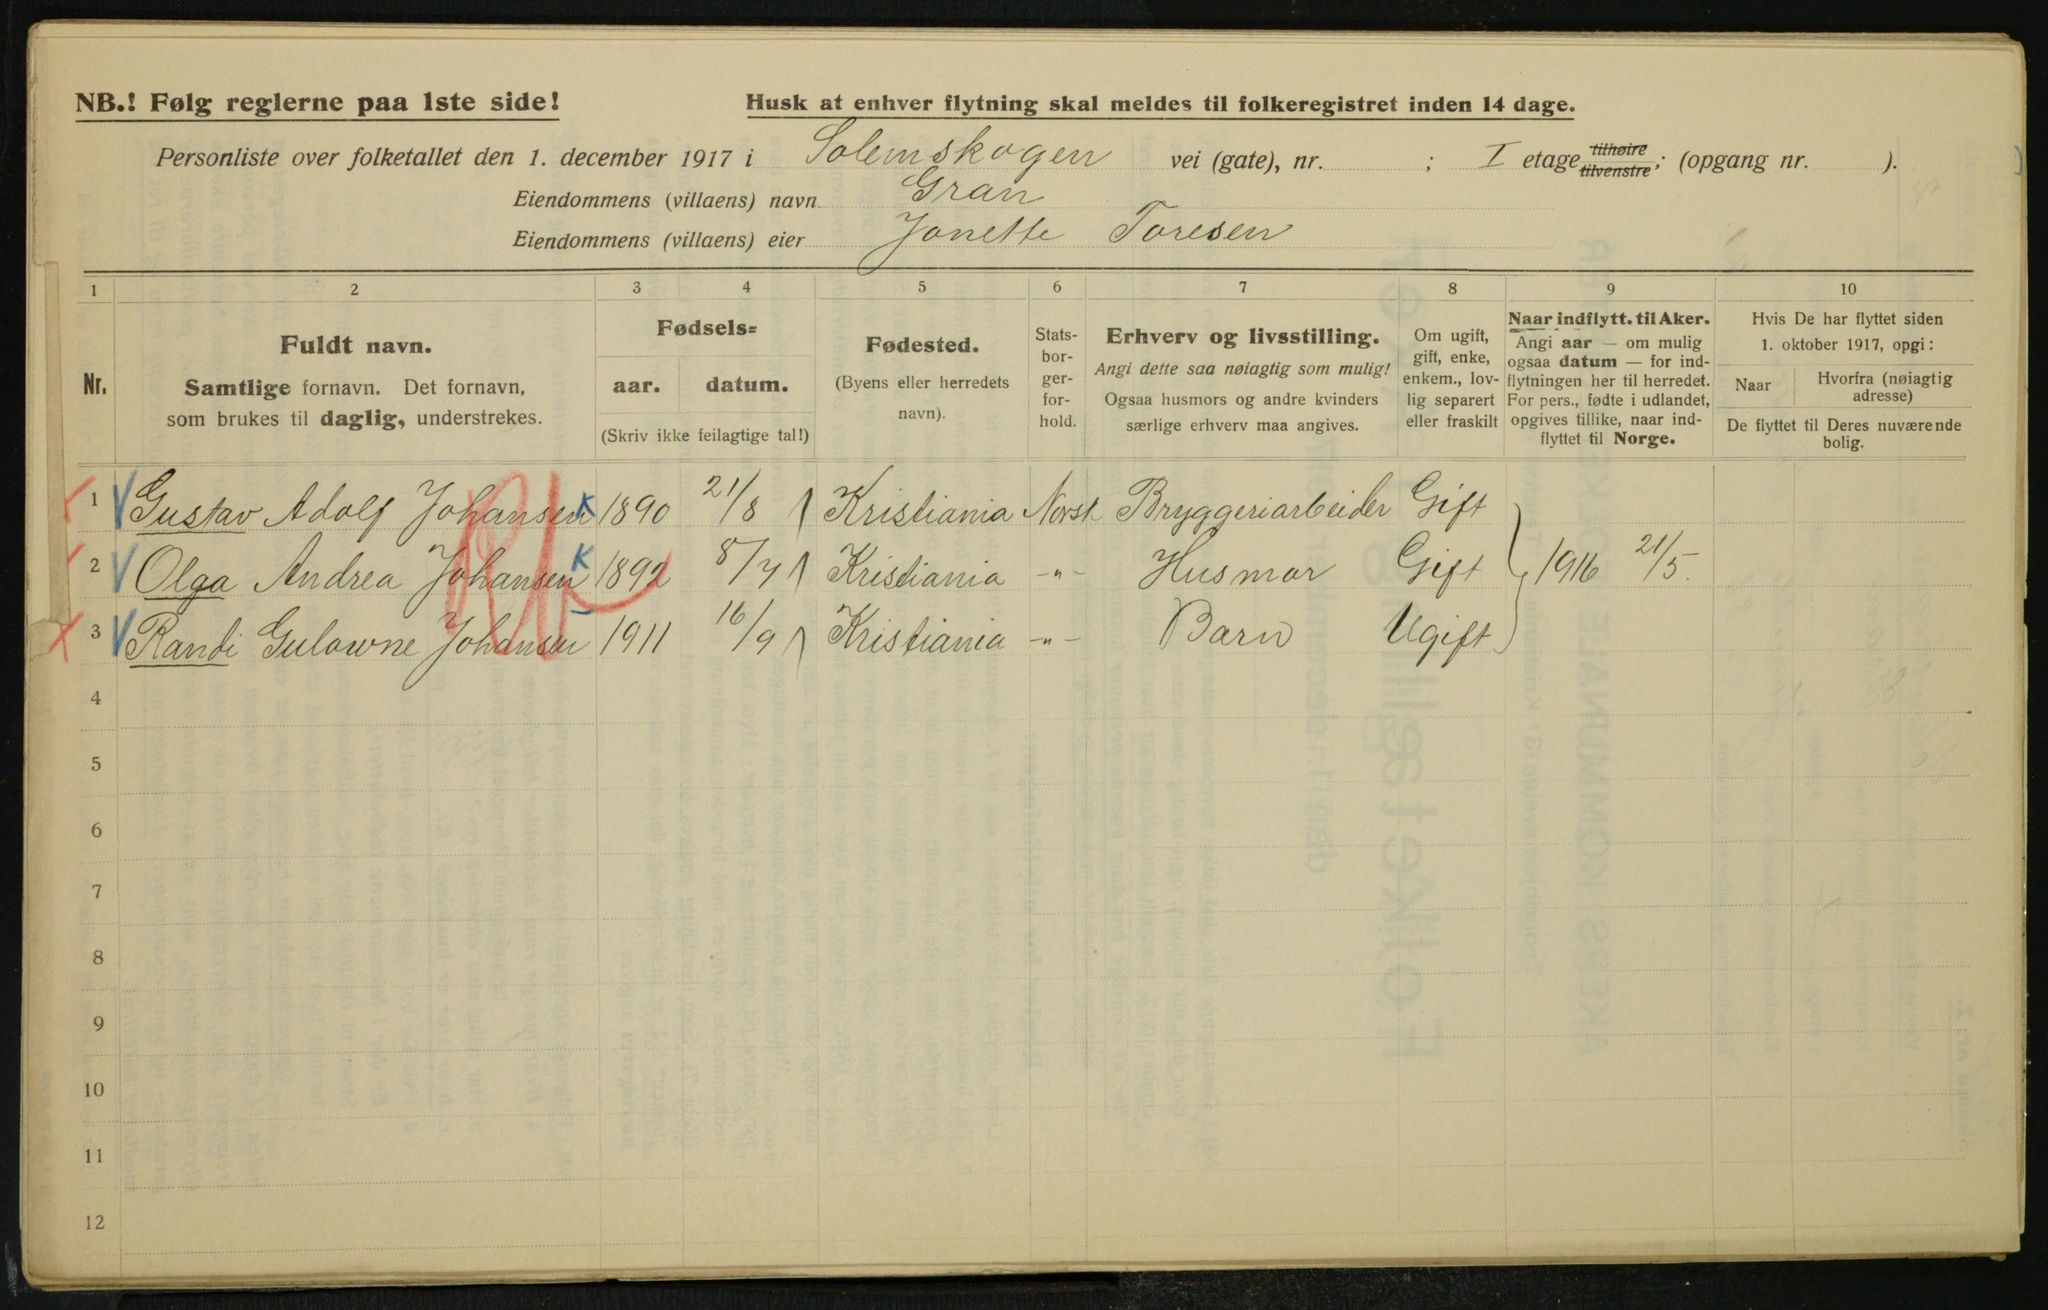 NB.! Følg reglerne paa 1ste side!
Husk at enhver flytning skal meldes til folkeregistret inden 14 dage.
Personliste over folketallet den 1. december 1917 i Solemskogen vei (gate), nr. ; I etage tilhøire tilvenstre; (opgang nr. ).
Eiendommens (villaens) navn Gran
Eiendommens (villaens) eier Jonette Toresen
1 2 3 4 5 6 7 8 9 10
Nr.
Fuldt navn.
Samtlige fornavn. Det fornavn,
som brukes til daglig, understrekes.
Fødsels=
aar. datum.
(Skriv ikke feilagtige tal!)
Fødested.
(Byens eller herredets
navn).
Stats-
bor-
ger-
for-
hold.
Erhverv og livsstilling.
Angi dette saa nøiagtig som mulig!
Ogsaa husmors og andre kvinders
særlige erhverv maa angives.
Om ugift,
gift, enke,
enkem., lov-
lig separert
eller fraskilt
Naar indflytt. til Aker.
Angi aar — om mulig
ogsaa datum — for ind-
flytningen her til herredet.
For pers., fødte i udlandet,
opgives tillike, naar ind-
flyttet til Norge.
Hvis De har flyttet siden
1. oktober 1917, opgi:
Naar
Hvorfra (nøiagtig
adresse)
De flyttet til Deres nuværende
bolig.
1 Gustav Adolf Johansen K 1890 21/8 Kristiania Norsk Bryggeriarbeider Gift
2 Olga Andrea Johansen K 1892 8/7 Kristiania -"- Husmor Gift 1916 21/5.
3 Randi Gulowne Johansen 1911 16/9 Kristiania -"- Barn Ugift
4
5
6
7
8
9
10
11
12